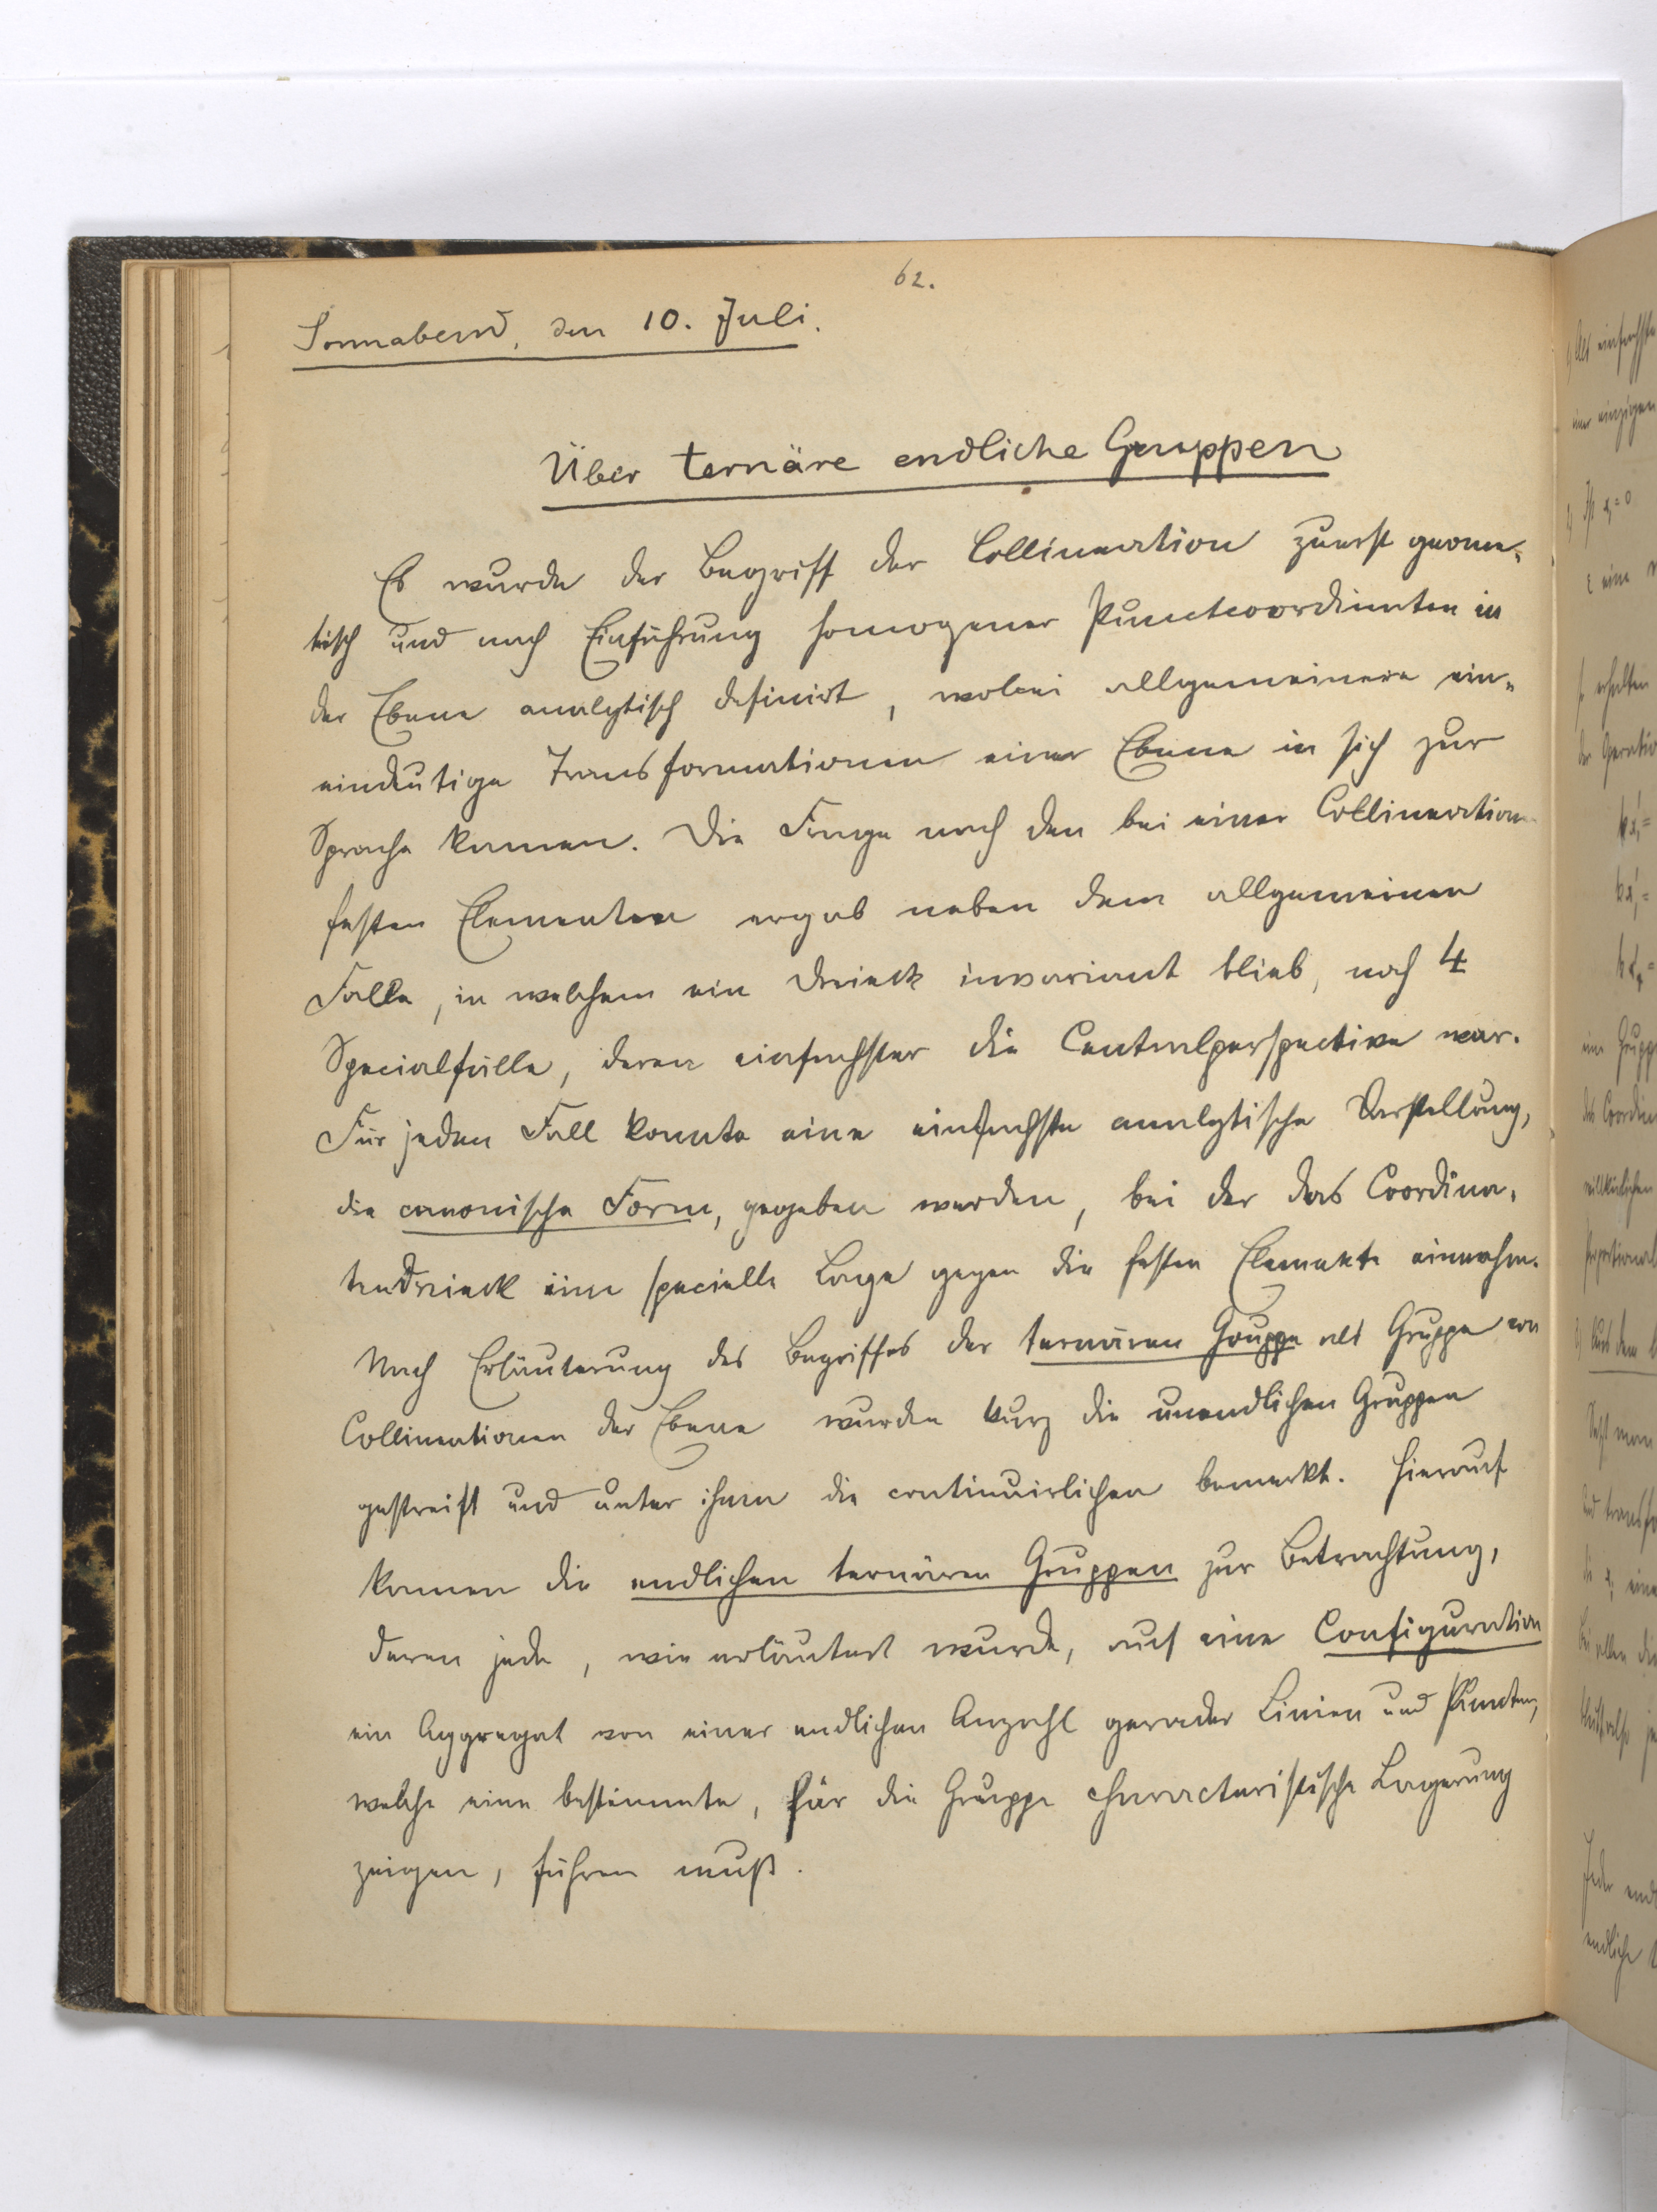 62.
Sonnabend, den 10. Juli.
Über ternäre endliche Gruppen
Es wurde der Begriff der Collineation zuerst geome-
trisch und nach Einführung homogener Punctcoordinaten in
der Ebene analytisch definirt, wobei allgemeinere ein-
eindeutige Transformationen einer Ebene in sich zur
Sprache kamen. Die Frage nach den bei einer Collineation
festen Elementen ergab neben dem allgemeinen
Falle, in welchem ein Dreieck invariant blieb, noch 4
Specialfälle, deren einfachster die Centralperspective war.
Für jeden Fall konnte eine einfachste analytische Darstellung,
die canonische Form, gegeben werden, bei der das Coordina-
tendreieck eine specielle Lage gegen die festen Elemente einnahm.
Nach Erläuterung des Begriffes der ternären Gruppe als Gruppe von
Collineationen der Ebene wurden kurz die unendlichen Gruppen
gestreift und unter ihnen die continuirlichen bemerkt. Hierauf
kamen die endlichen ternären Gruppen zur Betrachtung,
deren jede, wie erläutert wurde, auf eine Configuration
ein Aggregat von einer endlichen Anzahl gerader Linien und Puncten,
welche eine bestimmte, für die Gruppe characteristische Lagerung
zeigen, führen muß.